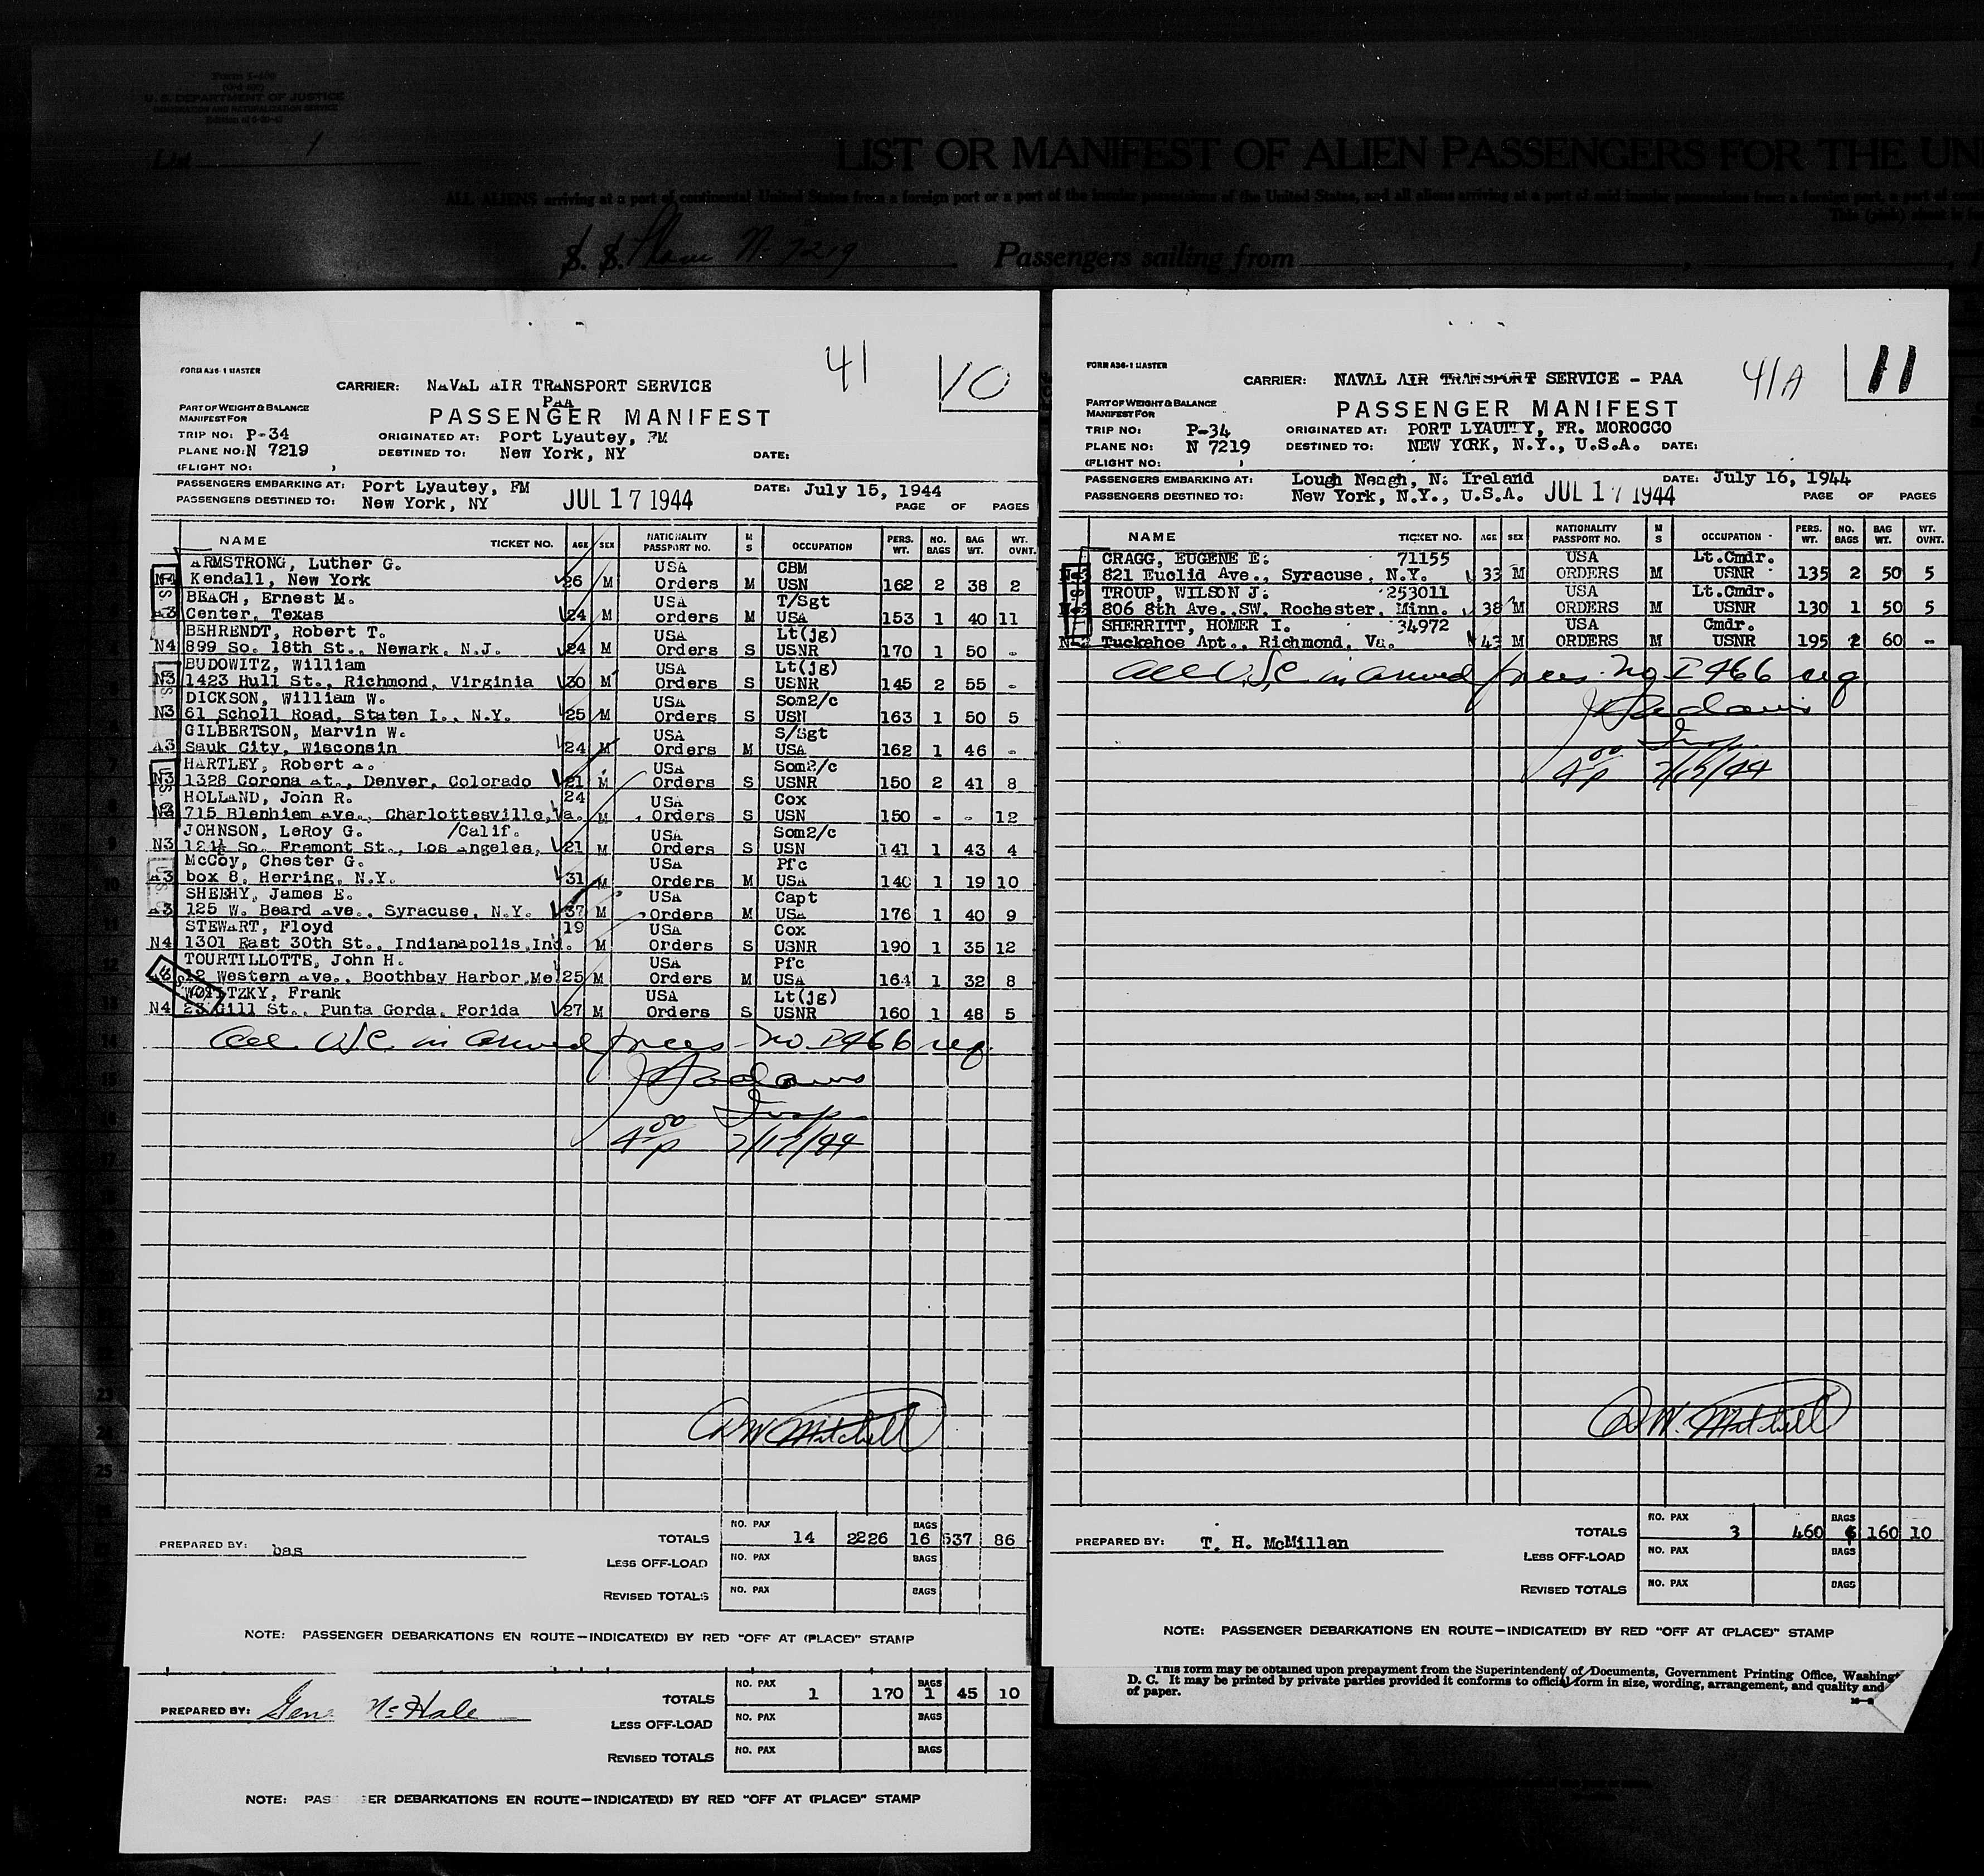 Form I-466
U. S. DEPARTMENT OF JUSTICE
IMMIGRATION AND NATURALIZATION SERVICE
List 1
LIST OR MANIFEST OF ALIEN PASSENGERS FOR THE UN
ALL ALIENS arriving at a port of continental United States from a foreign port or a port of the insular possessions of the United States, and all aliens arriving at a port of said insular possessions from a foreign port, a port of con
This (pink) sheet is f
S. S. Plane N. 7219 Passengers sailing from
41 10
FORM A36-1 MASTER
CARRIER: NAVAL AIR TRANSPORT SERVICE
PAA
PART OF WEIGHT & BALANCE
MANIFEST FOR
PASSENGER MANIFEST
TRIP NO: P-34 ORIGINATED AT: Port Lyautey, FM
PLANE NO: N 7219 DESTINED TO: New York, NY DATE:
(FLIGHT NO: )
PASSENGERS EMBARKING AT: Port Lyautey, FM DATE: July 15, 1944
PASSENGERS DESTINED TO: New York, NY JUL 17 1944 PAGE OF PAGES
NAME TICKET NO. AGE SEX NATIONALITY PASSPORT NO. M S OCCUPATION PERS. WT. NO. BAGS BAG WT. WT. OVNT.
ARMSTRONG, Luther G. USA CBM
N4 Kendall, New York 26 M Orders M USN 162 2 38 2
BEACH, Ernest M. USA T/Sgt
A3 Center, Texas 24 M orders M USA 153 1 40 11
BEHRENDT, Robert T. USA Lt(jg)
N4 899 So. 18th St., Newark, N.J. 24 M Orders S USNR 170 1 50 -
BUDOWITZ, William USA Lt(jg)
N3 1423 Hull St., Richmond, Virginia 30 M Orders S USNR 145 2 55 -
DICKSON, William W. USA Som2/c
N3 61 Scholl Road, Staten I., N.Y. 25 M Orders S USN 163 1 50 5
GILBERTSON, Marvin W. USA S/Sgt
A3 Sauk City, Wisconsin 24 M Orders M USA 162 1 46 -
HARTLEY, Robert A. USA Som2/c
N3 1328 Corona At., Denver, Colorado 21 M Orders S USNR 150 2 41 8
HOLLAND, John R. 24 USA Cox
N3 715 Blenhiem Ave., Charlottesville, Va. M Orders S USN 150 - - 12
JOHNSON, LeRoy G. /Calif. USA Som2/c
N3 121½ So. Fremont St., Los Angeles, 21 M Orders S USN 141 1 43 4
McCoy, Chester G. USA Pfc
A3 box 8, Herring, N.Y. 31 M Orders M USA 140 1 19 10
SHEEHY, James E. USA Capt
A3 125 W. Beard Ave., Syracuse, N.Y. 37 M Orders M USA 176 1 40 9
STEWART, Floyd 19 USA Cox
N4 1301 East 30th St., Indianapolis, Ind. M Orders S USNR 190 1 35 12
TOURTILLOTTE, John H. USA Pfc
12 Western Ave., Boothbay Harbor, Me 25 M Orders M USA 164 1 32 8
WOTITZKY, Frank USA Lt(jg)
N4 23 Gill St., Punta Gorda, Forida 27 M Orders S USNR 160 1 48 5
All USC in armed forces - no I 466 req.
J Adams
Insp
4 00 p 7/17/44
D W Mitchell
PREPARED BY: bas TOTALS NO. PAX 14 2226 BAGS 16 537 86
LESS OFF-LOAD NO. PAX BAGS
REVISED TOTALS NO. PAX BAGS
NOTE: PASSENGER DEBARKATIONS EN ROUTE—INDICATE(D) BY RED "OFF AT (PLACE)" STAMP
PREPARED BY: Gene McHale TOTALS NO. PAX 1 170 BAGS 1 45 10
LESS OFF-LOAD NO. PAX BAGS
REVISED TOTALS NO. PAX BAGS
NOTE: PAS ER DEBARKATIONS EN ROUTE—INDICATE(D) BY RED "OFF AT (PLACE)" STAMP
41A 11
FORM A36-1 MASTER
CARRIER: NAVAL AIR TRANSPORT SERVICE - PAA
PART OF WEIGHT & BALANCE
MANIFEST FOR
PASSENGER MANIFEST
TRIP NO: P-34 ORIGINATED AT: PORT LYAUTEY, FR. MOROCCO
PLANE NO: N 7219 DESTINED TO: NEW YORK, N.Y., U.S.A. DATE:
(FLIGHT NO: )
PASSENGERS EMBARKING AT: Lough Neagh, N. Ireland DATE: July 16, 1944
PASSENGERS DESTINED TO: New York, N.Y., U.S.A. JUL 17 1944 PAGE OF PAGES
NAME TICKET NO. AGE SEX NATIONALITY PASSPORT NO. M S OCCUPATION PERS. WT. NO. BAGS BAG WT. WT. OVNT.
CRAGG, EUGENE E. 71155 USA Lt.Cmdr.
821 Euclid Ave., Syracuse, N.Y. 33 M ORDERS M USNR 135 2 50 5
TROUP, WILSON J. 253011 USA Lt.Cmdr.
806 8th Ave., SW. Rochester, Minn. 38 M ORDERS M USNR 130 1 50 5
SHERRITT, HOMER I. 34972 USA Cmdr.
Tuckahoe Apt., Richmond, Va. 43 M ORDERS M USNR 195 2 60 -
All U.S.C. in armed forces. no I 466 req
J Adams
Insp
4 00 p 7/17/44
D W. Mitchell
PREPARED BY: T. H. McMillan TOTALS NO. PAX 3 460 BAGS 6 160 10
LESS OFF-LOAD NO. PAX BAGS
REVISED TOTALS NO. PAX BAGS
NOTE: PASSENGER DEBARKATIONS EN ROUTE—INDICATE(D) BY RED "OFF AT (PLACE)" STAMP
This form may be obtained upon prepayment from the Superintendent of Documents, Government Printing Office, Washing
D. C. It may be printed by private parties provided it conforms to official form in size, wording, arrangement, and quality and
of paper.